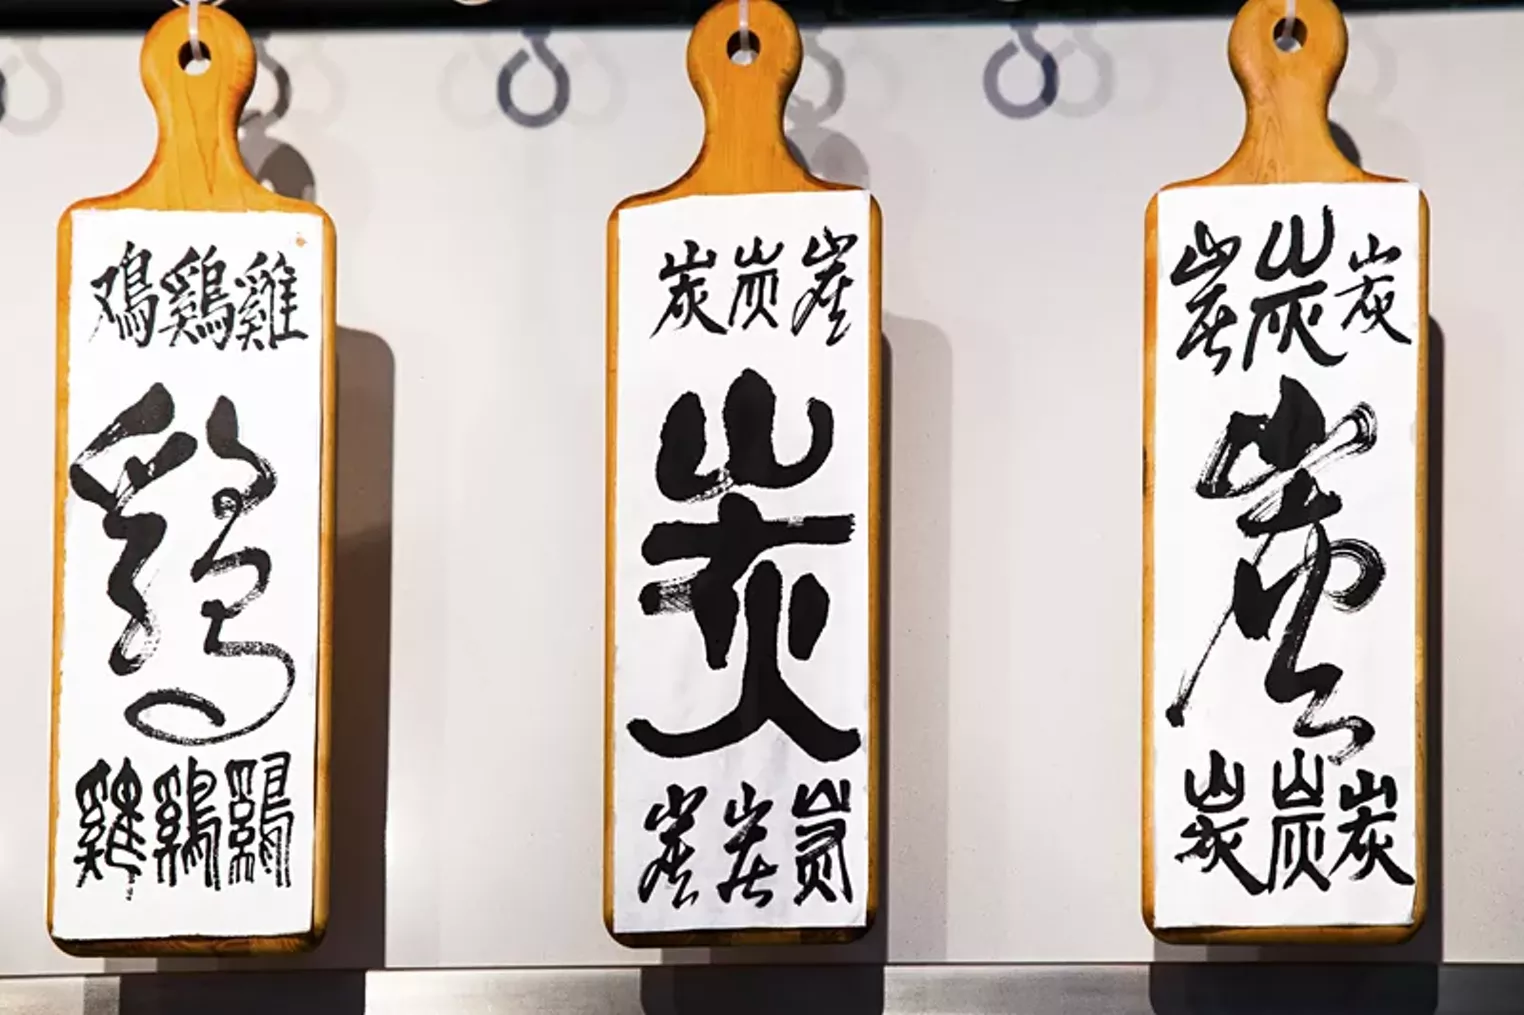 鸡鷄雞
鷄
雞鷄鷄
炭炭炭
炭
炭炭炭
炭炭炭
炭
炭炭炭